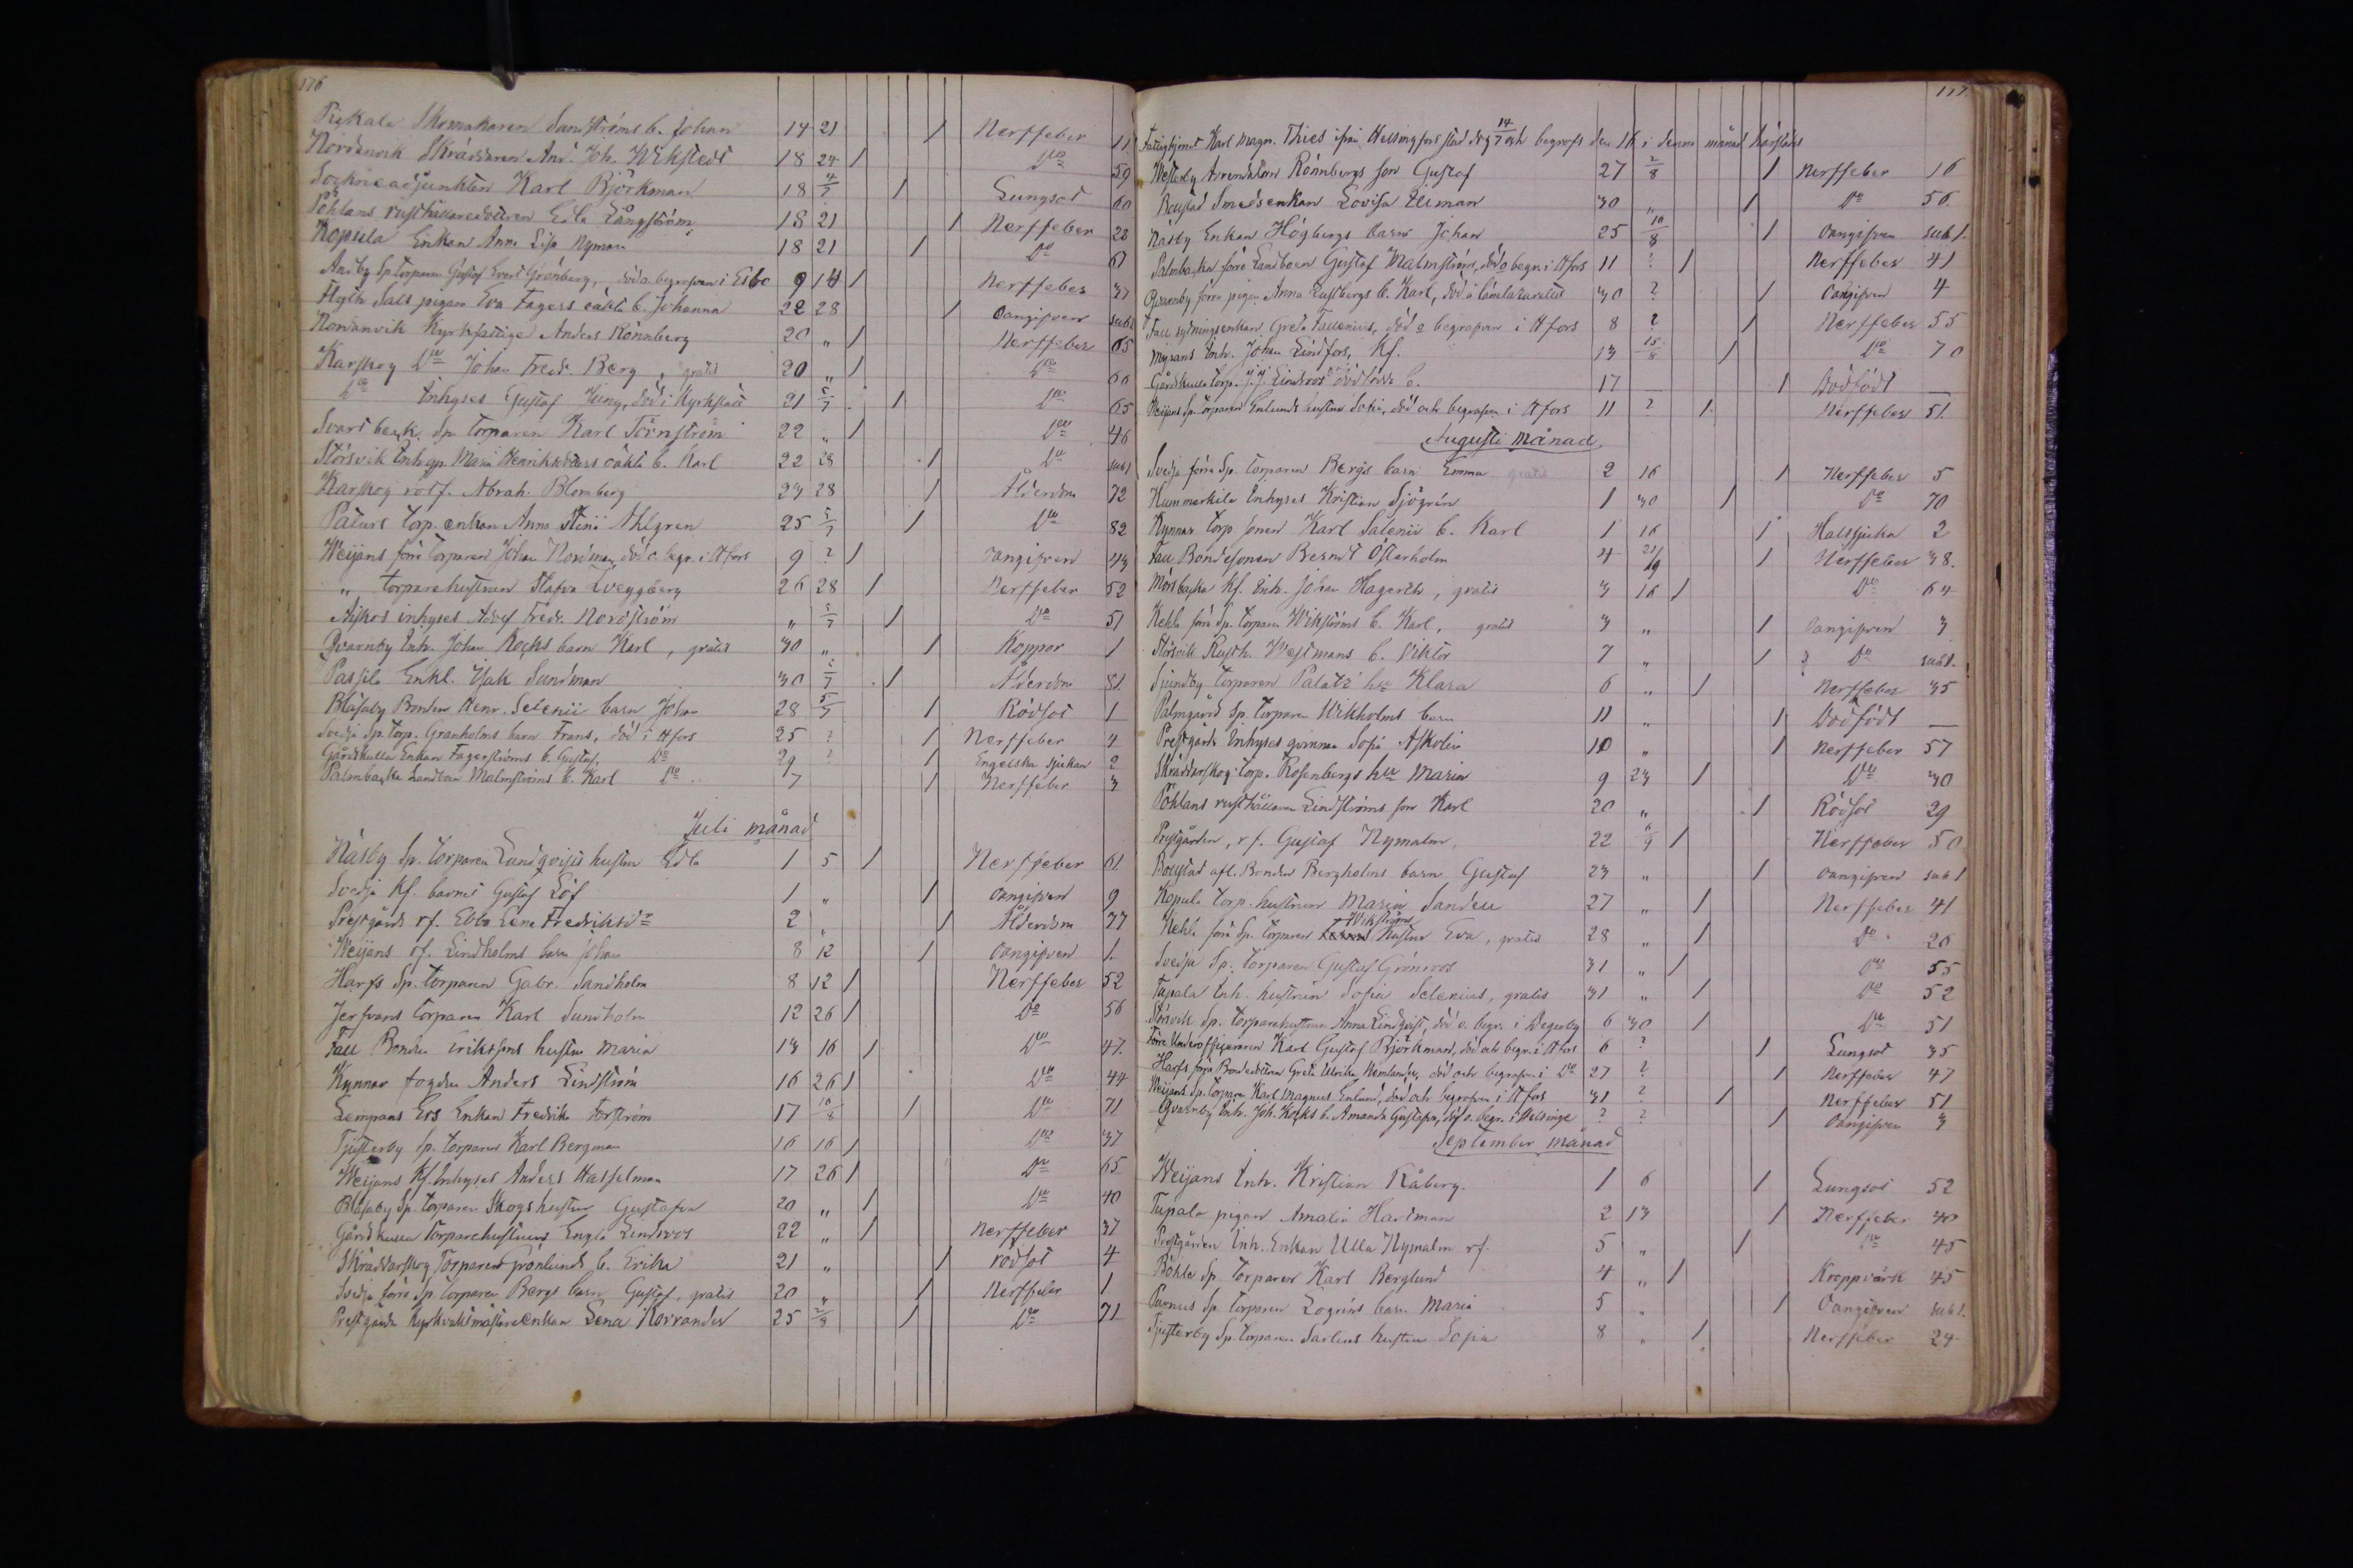 176
Pickala Skomakaren Sandströms b. Johan 14 21 / Nerffeber 11
Nordanvik Skräddaren And. Joh. Wikstedt 18 24 / Do 59
Sockneadjunkten Karl Björkman 18 4/7 / Lungsot 60
Pöhlans rusthållaredottren Edla Långström 18 21 / Nerffeber 28
Kopula Enkan Anna Lisa Nyman 18 21 / Do 61
Sp. Torparen Gustaf Evert Grönberg, död o begrafven i Esbo 9 14 / Nerffeber 37
pigan Eva Fagers oäkta b. Johanna 22 28 / Oangifven sub 1
Nordanvik Kyrkfattige Anders Rönnberg 20 „ / Nerffeber 65
Karskog Do Johan Fredr. Berg, gratis 20 „ / Do 66
Do Inhyses Gustaf Jung, död i Kyrkslätt 21 5/7 / Do 65
Svartbeck Sp. Torparen Karl Törnström 22 „ / Do 46
Störsvik Inh. Maria Henriksdotters oäkta b. Karl 22 28 / Do sub 1
Karskog rotf. Abrah. Blomberg 23 28 / Ålderdom 72
Påturs Torp. enkan Anna Stina Ahlgren 25 5/7 / Do 82
Weijans förre Torparen Johan Nordman, död o. begr. i Hfors 9 ? / Oangifven 43
„ Torparehustrun Stafva Sveggberg 26 28 / Nerffeber 52
inhyses Adolf Fredr. Nordström „ 5/7 / Do 51
Qvarnby Inh. Johan Kocks barn Karl, gratis 30 „ / Koppor 1
Passila Enkl. Isak Sundman 30 5/7 / Ålderdom 81
Blåsaby Bonden Henr. Selenii barn Johan 28 5/7 / Rödsot 1
Svedja Sp. Torp. Granholms barn Frans, död i Hfors 25 ? / Nerffeber 4
Gårdskulla Enkan Fagerströms b. Gustaf, Do 29 ? / Engelska sjukan 2
Palmbacka Landboen Malmströms b. Karl Do 7 / Nerffeber 3
Juli månad
Näsby Sp. Torparen Lundqvists hustru Edla 1 5 / Nerffeber 61
Svedja Kf. barnet Gustaf Löf 1 „ / Oangifven 9
Prestgårds rf. Ebba Lena Fredriksdr 2 „ / Ålderdom 77
Weijans rf. Lindholms barn Johan 8 12 / Oangifven 1
Harfs Sp. Torparen Gabr. Sandholm 8 12 / Nerffeber 52
Jerfvans Torparen Karl Sundholm 12 26 / Do 56
Fall Bonden Erikssons hustru Maria 13 16 / Do 47
Kynnar fogden Anders Lindström 16 26 / Do 44
Lempans Ers Enkan Fredrika Forström 17 10/8 / Do 71
Tjusterby Sp. Torparen Karl Bergman 16 16 / Do 37
Weijans Kf. Inhyses Anders Hasselman 17 26 / Do 65
Blåsaby Sp. Torparen Skogs hustru Gustafva 20 „ / Do 40
Gårdskulla Torparehustrun Engla Lindroos 22 „ / Nerffeber 37
Skräddarskog Torparen Grönlunds b. Erika 21 „ / rödsot 4
Svedja förre Sp. Torparen Bergs barn Gustaf, gratis 20 „ / Nerffeber 1
Prestgårds Kyrkvaktmästareenkan Lena Norrander 25 2/8 / Do 71
177
Fattighjonet Karl Magn. Thies ifrån Helsingfors stad dog 14/7 och begrofs den 16 i denna månad härstädes
Westerby Arrendatorn Rönnbergs son Gustaf 27 2/8 / Nerffeber 16
Båtstad Smedsenkan Lovisa Ekman 30 „ / Do 56
Näsby Enkan Högbergs barn Johan 25 10/8 / Oangifven sub 1.
Palmbacka förre Landboen Gustaf Malmström, död o begr. i Hfors 11 ? / Nerffeber 41
Qvarnby förra pigan Anna Lustbergs b. Karl, död å länelazarettet 30 ? / Oangifven 4
Fall sytningsenkan Greta Fallenius, död o begrafven i Hfors 8 ? / Nerffeber 55
Myrans Inh. Johan Lindfors, Kf. 13 15/8 / Do 70
Gårdskulla Torp. J. J. Lindroos dödfödda b. 17 — / Dödfödt —
Weijans Sp. Torparen Enlunds hustru Sofia, död och begrafven i Hfors 11 ? / Nerffeber 51.
Augusti månad
Svedja förre Sp. Torparen Bergs barn Emma gratis 2 16 / Nerffeber 5
Kummerkila Inhyses Kristian Sjögren 1 30 / Do 70
Kynnar Torp sonen Karl Salenii b. Karl 1 16 / Halssjuka 2
Fall Bondesonen Bernt Österholm 4 21/9 / Nerffeber 38.
Mörsbacka Kf. Inh. Johan Hagerth, gratis 3 16 / Do 64
Kehla förre Sp. Torparen Wikströms b. Karl, gratis 3 „ / Oangifven 3
Störsvik Rusth. Westmans b. Viktor 7 „ / Do sub 1.
Sjundby Torparen Palats' hu Klara 6 „ / Nerffeber 35
Palmgård Sp. Torparen Wikholms barn 11 „ / Dödfödt —
Prestgårds Inhyses qvinnan Sofia Askolin 10 „ / Nerffeber 57
Skräddarskog Torp. Rosenbergs hu Maria 9 23 / Do 30
Pöhlans rusthållaren Lindströms son Karl 20 „ / Rödsot 29
Prestgården, rf. Gustaf Nymalm. 22 6/9 / Nerffeber 50
Båtstad afl. Bonden Bergholms barn Gustaf 23 „ / Oangifven sub 1
Kopula Torp. hustrun Maria Sandell 27 „ / Nerffeber 41
Kehla förre Sp. Torparen Wikströms hustru Eva, gratis 28 „ / Do 26
Svedja Sp. Torparen Gustaf Grönroos 31 „ / Do 55
Tupala Inh. hustrun Sofia Selenius, gratis 31 „ / Do 52
Störsvik Sp. Torparehustrun Anna Lindqvist, död o. begr. i Degerby 6 30 / Do 51
Förre Underofficeraren Karl Gustaf Björkman, död och begr. i Hfors 6 ? / Lungsot 35
Harfs förra Bondedottren Greta Ulrika Nemlander, död och begrafven i Do 27 ? / Nerffeber 47
Weijans Sp. Torparen Karl Magnus Enlund, död och begrafven i Hfors 31 ? / Nerffeber 51
Qvarnby Inh. Joh. Kocks b. Amanda Gustafva, död o. begr. i Helsinge ? ? / Oangifven 3
September månad
Weijans Inh. Kristian Råberg. 1 6 / Lungsot 52
Tupala pigan Amalia Hartman 2 13 / Nerffeber 40
Prestgården Inh. Enkan Ulla Nymalm rf. 5 „ / Do 45
Böhle Sp. Torparen Karl Berglund 4 „ / Kroppvärk 45
Purnus Sp. Torparen Logréns barn Maria 5 „ / Oangifven sub 1.
Tjusterby Sp. Torparen Sarlins hustru Sofia 8 „ / Nerffeber 24